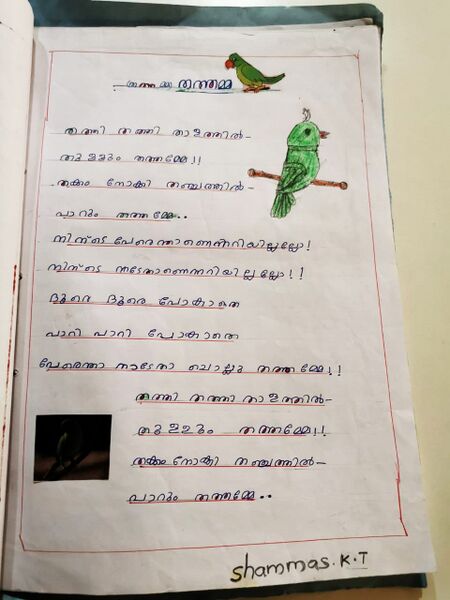 തത്തമ്മ തത്തമ്മ
തത്തി തത്തി താളത്തിൽ-
തുള്ളും തത്തമ്മേ!!
തക്കം നോക്കി തഞ്ചത്തിൽ-
പാറും തത്തമ്മേ..
നിന്റെ പേരെന്താണെന്നറിയില്ലല്ലോ!
നിന്റെ നാടേതാണെന്നറിയില്ലല്ലോ!!
ദൂരെ ദൂരെ പോകാതെ
പാറി പാറി പോകാതെ
പേരെന്താ നാടേതാ ചൊല്ലു തത്തമ്മേ!!
തത്തി തത്തി താളത്തിൽ-
തുള്ളും തത്തമ്മേ!!
തക്കം നോക്കി തഞ്ചത്തിൽ-
പാറും തത്തമ്മേ..
shammas.K.T